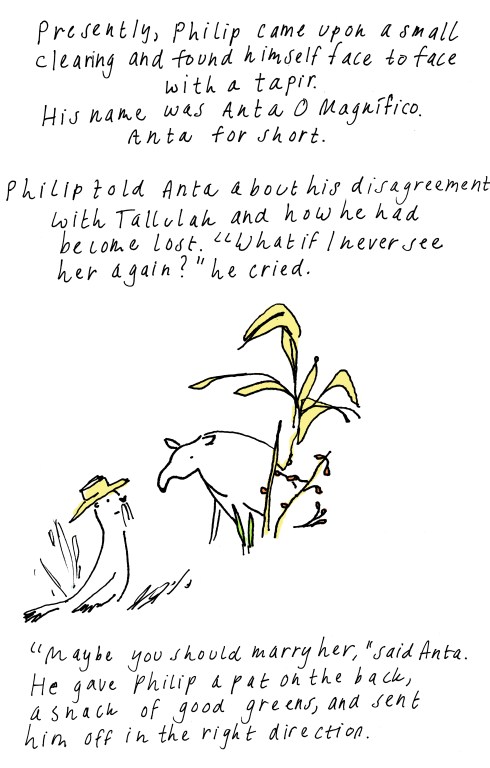 Presently, Philip came upon a small
clearing and found himself face to face
with a tapir.
His name was Anta O Magnífico.
Anta for short.
Philip told Anta about his disagreement
with Tallulah and how he had
become lost. "What if I never see
her again?" he cried.
"Maybe you should marry her," said Anta.
He gave Philip a pat on the back,
a snack of good greens, and sent
him off in the right direction.